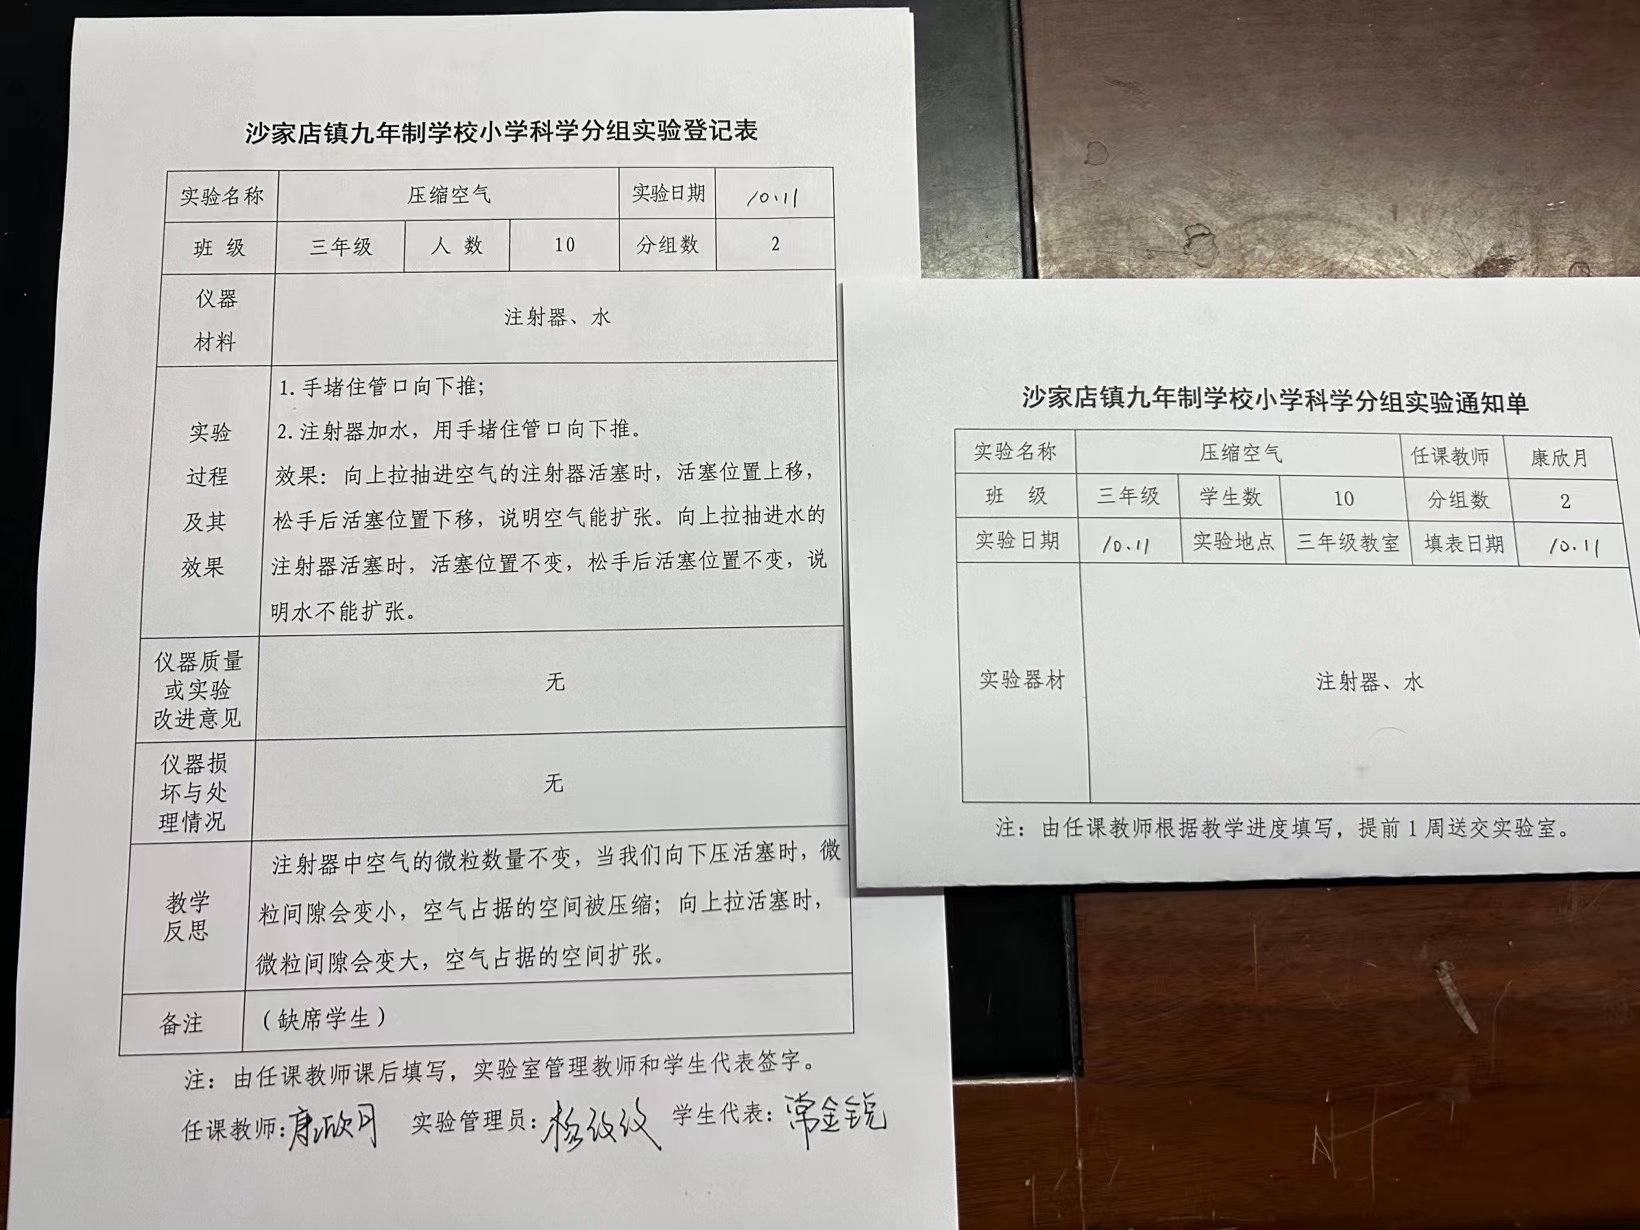 沙家店镇九年制学校小学科学分组实验登记表
实验名称 压缩空气 实验日期 10.11
班 级 三年级 人 数 10 分组数 2
仪器
材料
注射器、水
实验
过程
及其
效果
1.手堵住管口向下推；
2.注射器加水，用手堵住管口向下推。
效果：向上拉抽进空气的注射器活塞时，活塞位置上移，
松手后活塞位置下移，说明空气能扩张。向上拉抽进水的
注射器活塞时，活塞位置不变，松手后活塞位置不变，说
明水不能扩张。
仪器质量
或实验
改进意见
无
仪器损
坏与处
理情况
无
教学
反思
注射器中空气的微粒数量不变，当我们向下压活塞时，微
粒间隙会变小，空气占据的空间被压缩；向上拉活塞时，
微粒间隙会变大，空气占据的空间扩张。
备注 （缺席学生）
注：由任课教师课后填写，实验室管理教师和学生代表签字。
任课教师：康欣月 实验管理员： 学生代表：常金锐
沙家店镇九年制学校小学科学分组实验通知单
实验名称 压缩空气 任课教师 康欣月
班 级 三年级 学生数 10 分组数 2
实验日期 10.11 实验地点 三年级教室 填表日期 10.11
实验器材 注射器、水
注：由任课教师根据教学进度填写，提前1周送交实验室。